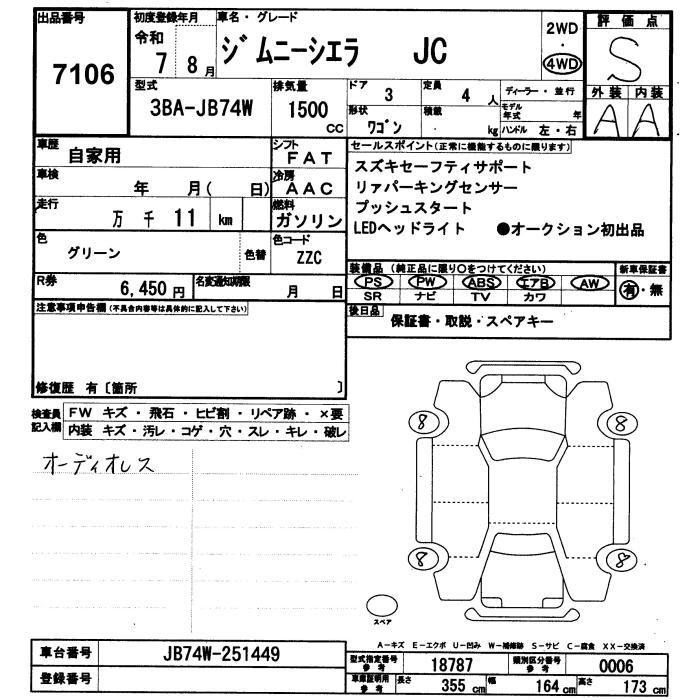 出品番号
7106
初度登録年月
令和
7 8月
車名・グレード
ジムニーシエラ JC
2WD
・
4WD
評価点
S
外装 内装
A A
型式
3BA-JB74W
排気量
1500
cc
ドア
3
定員
4 人
形状
ワゴン
積載
kg
ディーラー・並行
モデル年式 年
ハンドル 左・右
車歴
自家用
シフト
FAT
車検
年 月( 日)
冷房
AAC
走行
万 千 11 km
燃料
ガソリン
色
グリーン
色替
色コード
ZZC
R券
6,450 円
名変通知期限
月 日
セールスポイント(正常に機能するものに限ります)
スズキセーフティサポート
リァパーキングセンサー
プッシュスタート
LEDヘッドライト ●オークション初出品
装備品(純正品に限り○をつけてください)
PS PW ABS エアB AW
SR ナビ TV カワ
新車保証書
有・無
後日品
保証書・取説・スペアキー
注意事項申告欄(不具合内容等は具体的に記入して下さい)
修復歴 有〔箇所 〕
検査員記入欄
FW キズ・飛石・ヒビ割・リペア跡・×要
内装 キズ・汚レ・コゲ・穴・スレ・キレ・破レ
オーディオレス
8 8
8 8
スペア
A-キズ E-エクボ U-凹み W-補修跡 S-サビ C-腐食 XX-交換済
車台番号
JB74W-251449
登録番号
型式指定番号
参考
18787
類別区分番号
参考
0006
車庫証明用
参考
長さ
355 cm
幅
164 cm
高さ
173 cm